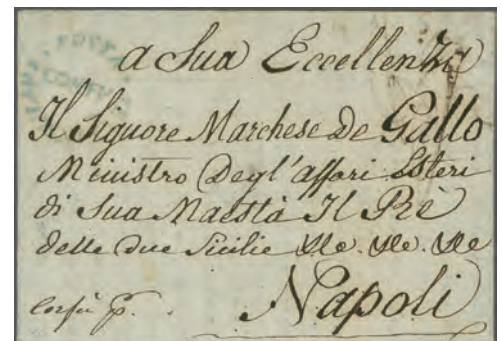 a Sua Eccellenza
Il Signore Marchese De Gallo
Ministro Degl'affari Esteri
di Sua Maestà Il Rè
delle due Sicilie &c. &c. &c.
Corfù p.
Napoli